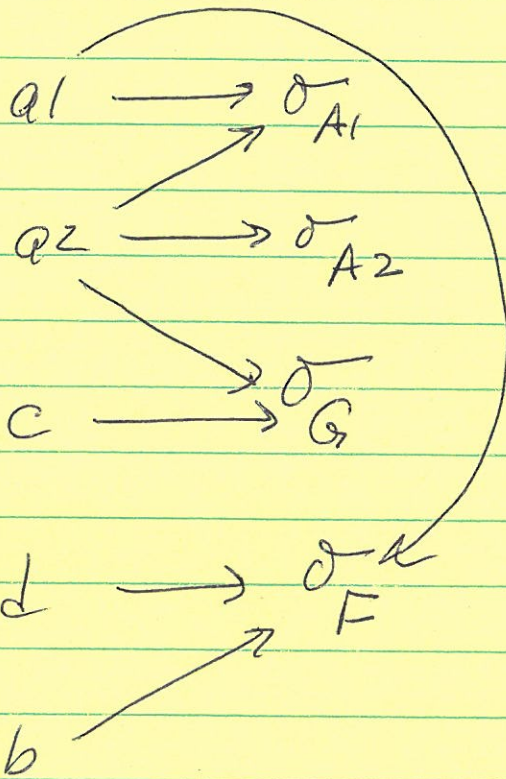 a1 → σ_A1
a2 → σ_A2
σ_G
c →
d → σ_F
b